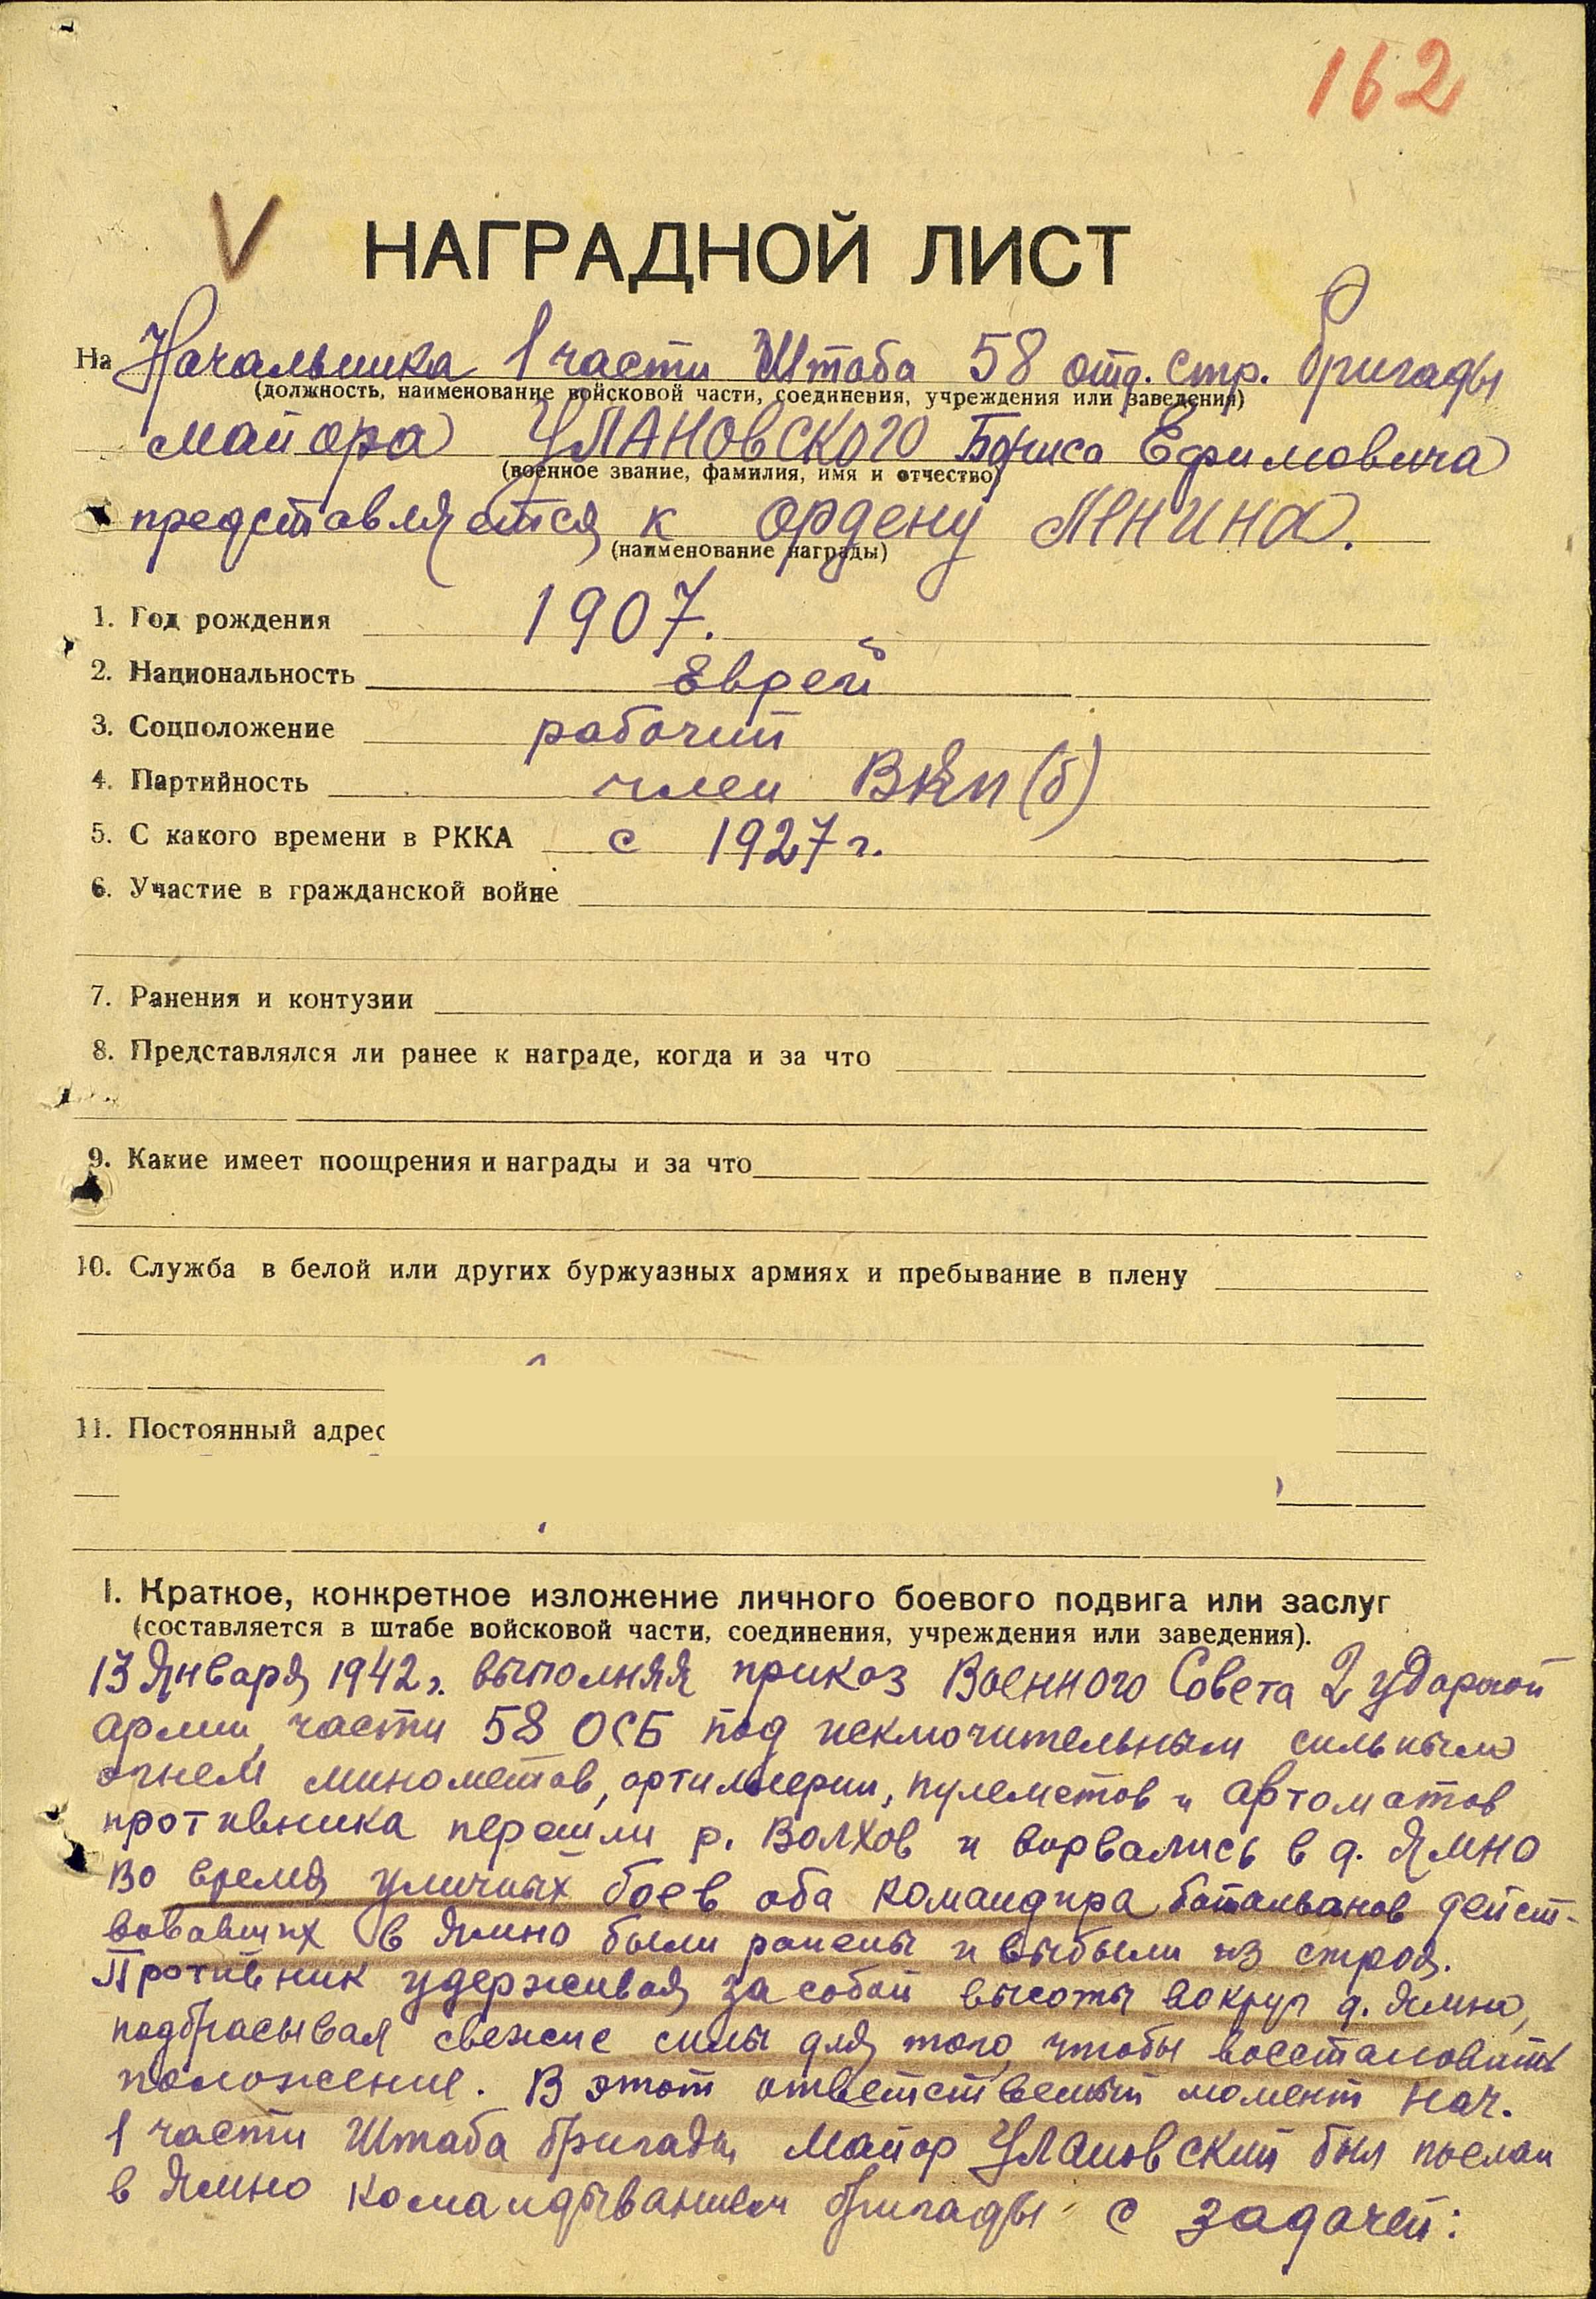 162
V
НАГРАДНОЙ ЛИСТ
На Начальника 1 части Штаба 58 отд. стр. бригады
(должность, наименование войсковой части, соединения, учреждения или заведения)
майора УЛАНОВСКОГО Бориса Ефимовича
(военное звание, фамилия, имя и отчество)
представляется к ордену ЛЕНИНА.
(наименование награды)
1. Год рождения 1907.
2. Национальность Еврей
3. Соцположение рабочий
4. Партийность член ВКП(б)
5. С какого времени в РККА с 1927 г.
6. Участие в гражданской войне
7. Ранения и контузии
8. Представлялся ли ранее к награде, когда и за что
9. Какие имеет поощрения и награды и за что
10. Служба в белой или других буржуазных армиях и пребывание в плену
11. Постоянный адрес
I. Краткое, конкретное изложение личного боевого подвига или заслуг
(составляется в штабе войсковой части, соединения, учреждения или заведения).
13 Января 1942 г. выполняя приказ Военного Совета 2 ударной
армии, части 58 ОСБ под исключительным сильным
огнем минометов, артиллерии, пулеметов и автоматов
противника перешли р. Волхов и ворвались в д. Ямно
Во время уличных боев оба командира батальонов дейст-
вовавших в Ямно были ранены и выбыли из строя.
Противник удерживая за собой высоты вокруг д. Ямно,
подбрасывая свежие силы для того, чтобы восстановить
положение. В этот ответственый момент нач.
1 части Штаба бригады Майор Улановский был послан
в Ямно командыванием бригады с задачей: